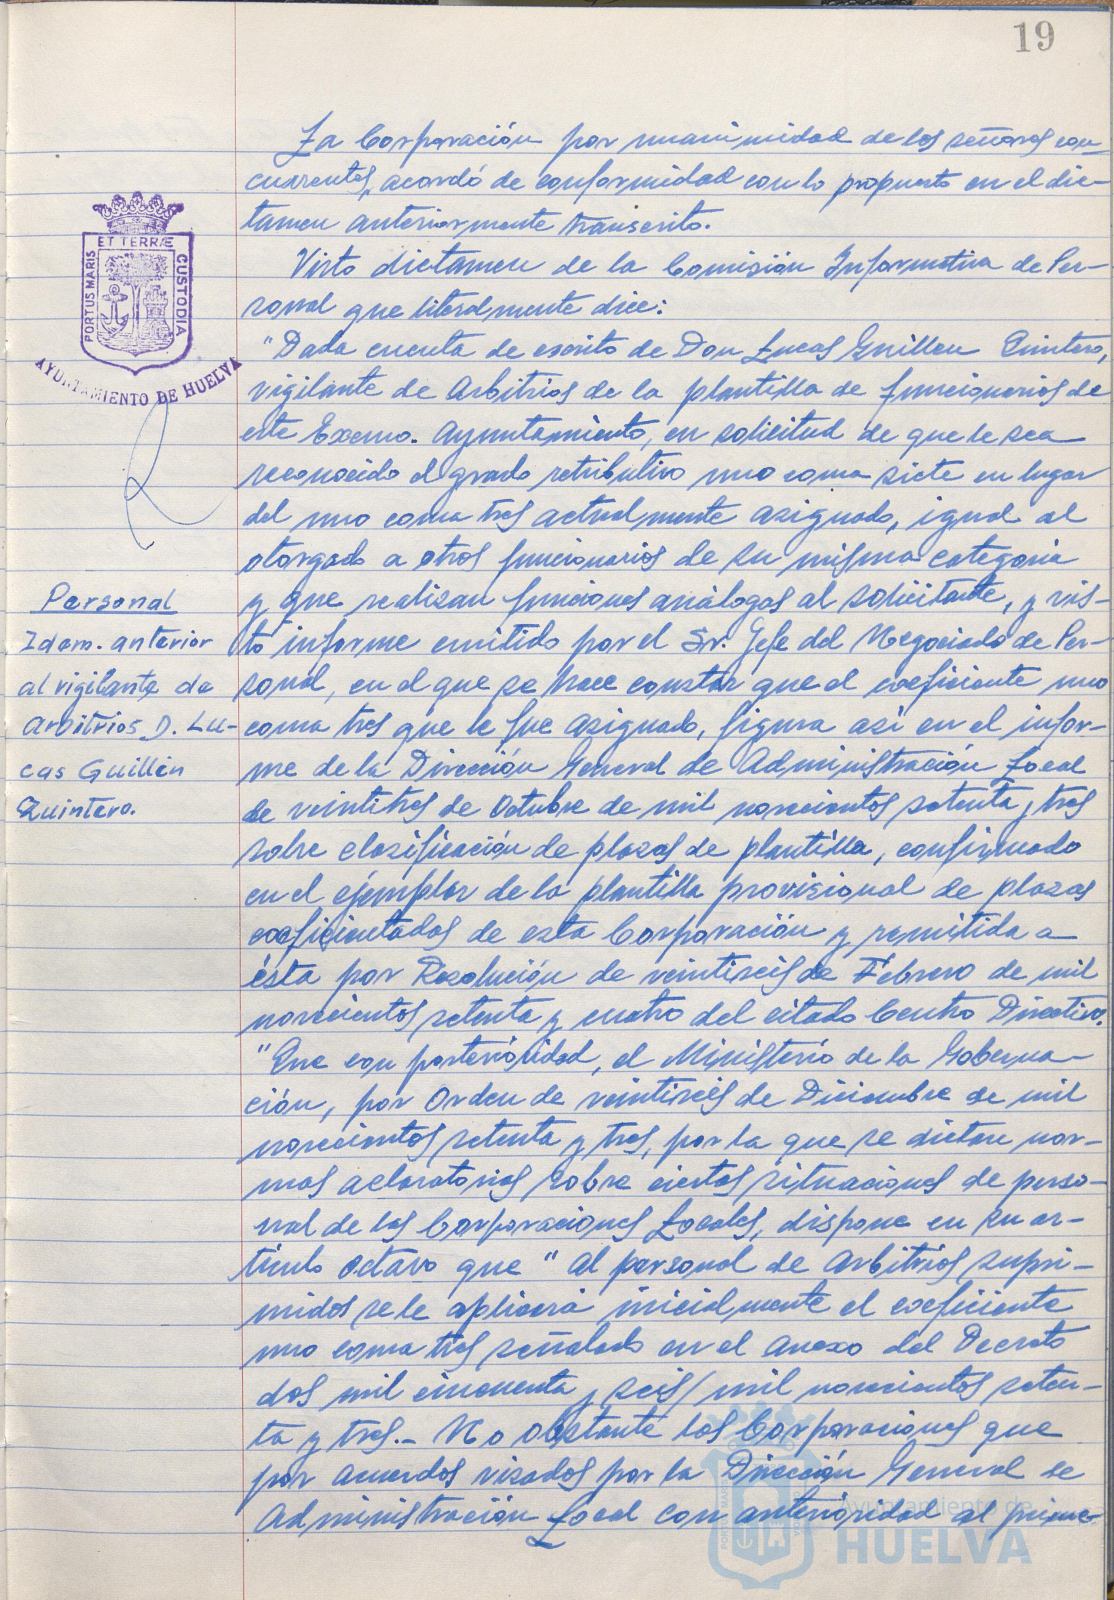 19
La Corporación por unanimidad de los señores con-
currentes, acordó de conformidad con lo propuesto en el dic-
tamen anteriormente transcrito.
Visto dictamen de la Comisión Informativa de Per-
sonal que literalmente dice:
"Dada cuenta de escrito de Don Lucas Guillen Quintero,
vigilante de Arbitrios de la plantilla de funcionarios de
este Excmo. Ayuntamiento, en solicitud de que le sea
reconocido el grado retributivo uno coma siete en lugar
del uno coma tres actualmente asignado, igual al
otorgado a otros funcionarios de su misma categoria
y que realizan funciones análogas al solicitante, y vis-
to informe emitido por el Sr. Jefe del Negociado de Per-
sonal, en el que se hace constar que el coeficiente uno
coma tres que le fue asignado, figura asi en el infor-
me de la Dirección General de Administración Local
de veintitres de Octubre de mil novecientos setenta y tres
sobre clasificación de plazas de plantilla, confirmado
en el ejemplar de la plantilla provisional de plazas
coeficientadas de esta Corporación y remitida a
ésta por Resolución de veintiseis de Febrero de mil
novecientos setenta y cuatro del citado Centro Directivo.
"Que con posterioridad, el Ministerio de la Goberna-
ción, por Orden de veintiseis de Diciembre de mil
novecientos setenta y tres, por la que se dictan nor-
mas aclaratorias sobre ciertas situaciones de perso-
nal de las Corporaciones Locales, dispone en su ar-
tículo octavo que "al personal de Arbitrios supri-
midos se le aplicará inicialmente el coeficiente
uno coma tres señalado en el anexo del Decreto
dos mil cincuenta y seis/mil novecientos seten-
ta y tres.- No obstante las Corporaciones que
por acuerdos visados por la Dirección General de
Administración Local con anterioridad al prime-
PORTUS MARIS
ET TERRÆ
CUSTODIA
AYUNTAMIENTO DE HUELVA
Personal
Idem. anterior
al vigilante de
Arbitrios D. Lu-
cas Guillén
Quintero.
Ayuntamiento de
HUELVA